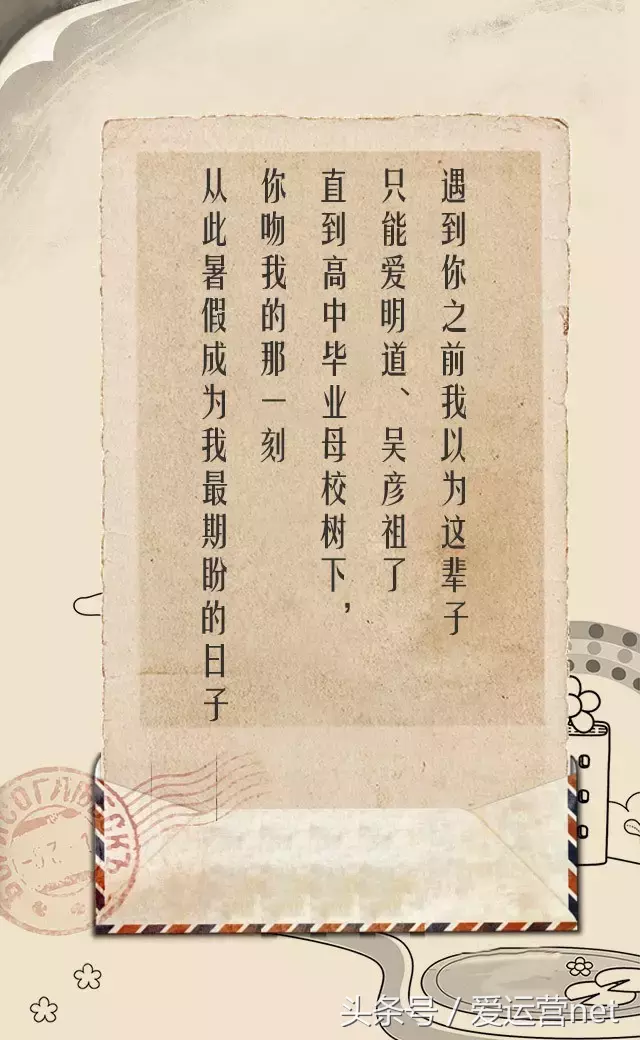 遇到你之前我以为这辈子
只能爱明道、吴彦祖了
直到高中毕业母校树下，
你吻我的那一刻
从此暑假成为我最期盼的日子
头条号 / 爱运营net